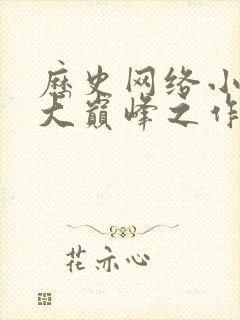 历史网络小
大巅峰之作
花亦心